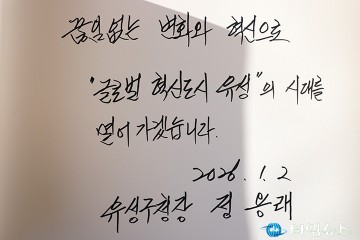 끊임없는 변화와 혁신으로
"글로벌 혁신도시 유성"의 시대를
열어 가겠습니다.
2026. 1. 2
유성구청장 정용래